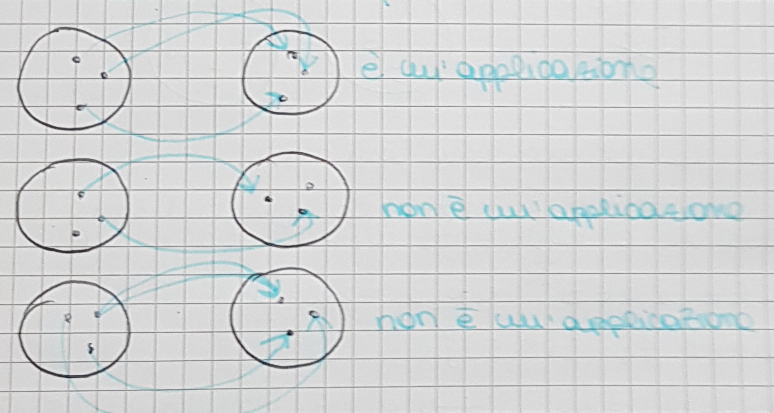 è un'applicazione
non è un'applicazione
non è un'applicazione